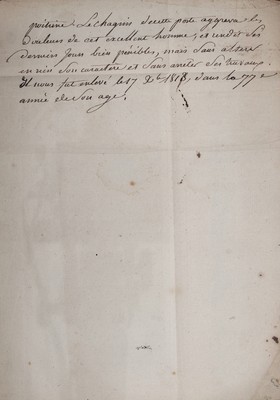 poitrine. Le chagrin de cette perte aggrava les
douleurs de cet excellent homme, et rendit ses
derniers jours bien pénibles, mais sans altérer
en rien son caractère et sans arrêter ses travaux.
Il nous fut enlevé le 17 1818, dans la 77e
année de son age.